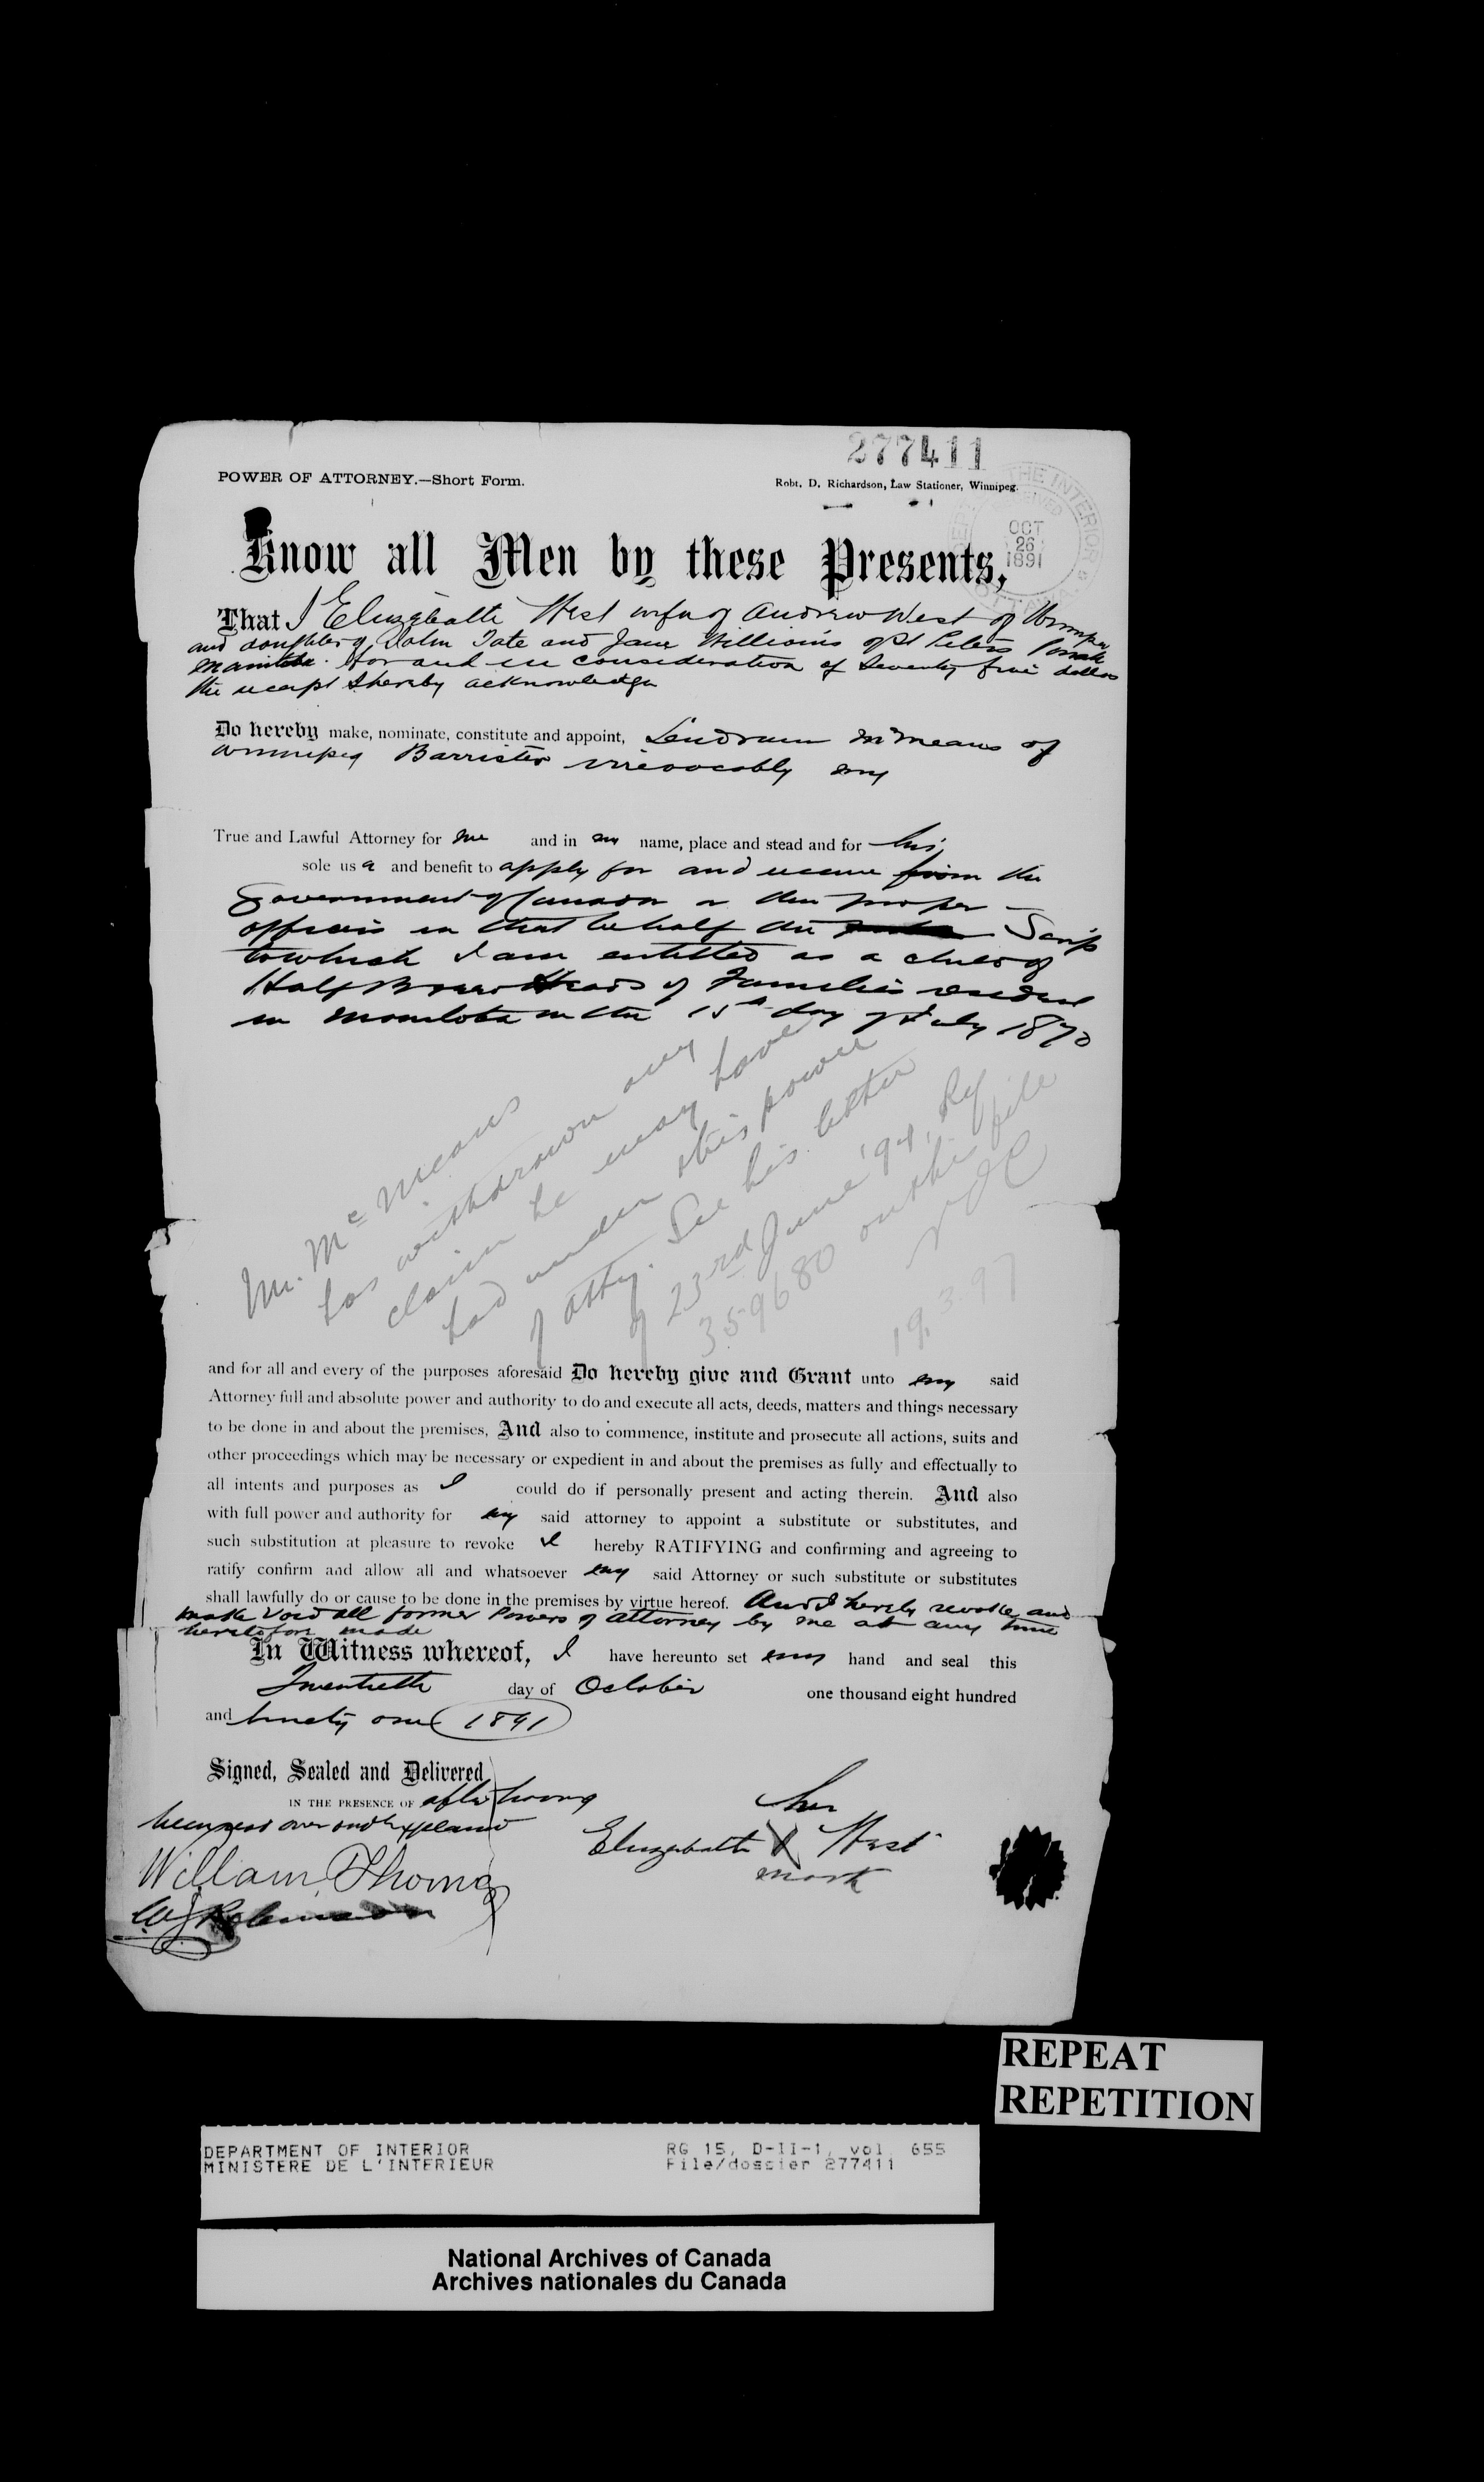 277411
POWER OF ATTORNEY.—Short Form.
Robt. D. Richardson, Law Stationer, Winnipeg.
DEPT. OF THE INTERIOR
RECEIVED
OCT
26
1891
OTTAWA
Know all Men by these Presents,
That I Elizabeth West wife of Andrew West of Winnipeg
and daughter of John Tate and Jane Williams of St Peters Parish
Manitoba. for and in consideration of Seventy five dollars
the receipt I hereby acknowledge
Do hereby make, nominate, constitute and appoint, Lendrum McMeans of
Winnipeg Barrister irrevocably my
True and Lawful Attorney for me and in my name, place and stead and for his
sole use and benefit to apply for and receive from the
Government of Canada or the proper
officers in that behalf the Scrip
to which I am entitled as a child of
Half Breed Heads of Families resident
in Manitoba on the 15th day of July 1870
Mr. McMeans
has withdrawn any
claim he may have
had under this power
of atty. See his letter
of 23rd June '94, Ref
359680 on this file
19.3.97
and for all and every of the purposes aforesaid Do hereby give and Grant unto my said
Attorney full and absolute power and authority to do and execute all acts, deeds, matters and things necessary
to be done in and about the premises, And also to commence, institute and prosecute all actions, suits and
other proceedings which may be necessary or expedient in and about the premises as fully and effectually to
all intents and purposes as I could do if personally present and acting therein. And also
with full power and authority for my said attorney to appoint a substitute or substitutes, and
such substitution at pleasure to revoke I hereby RATIFYING and confirming and agreeing to
ratify confirm and allow all and whatsoever my said Attorney or such substitute or substitutes
shall lawfully do or cause to be done in the premises by virtue hereof. And I hereby revoke and
make void all former Powers of Attorney by me at any time
heretofore made
In Witness whereof, I have hereunto set my hand and seal this
Twentieth day of October one thousand eight hundred
and ninety one (1891)
Signed, Sealed and Delivered
IN THE PRESENCE OF after having
been read over and explained
her
Elizabeth X West
mark
William Thomas
W J Robinson
REPEAT
REPETITION
DEPARTMENT OF INTERIOR
MINISTERE DE L'INTERIEUR
RG 15, D-II-1, vol. 655
File/dossier 277411
National Archives of Canada
Archives nationales du Canada